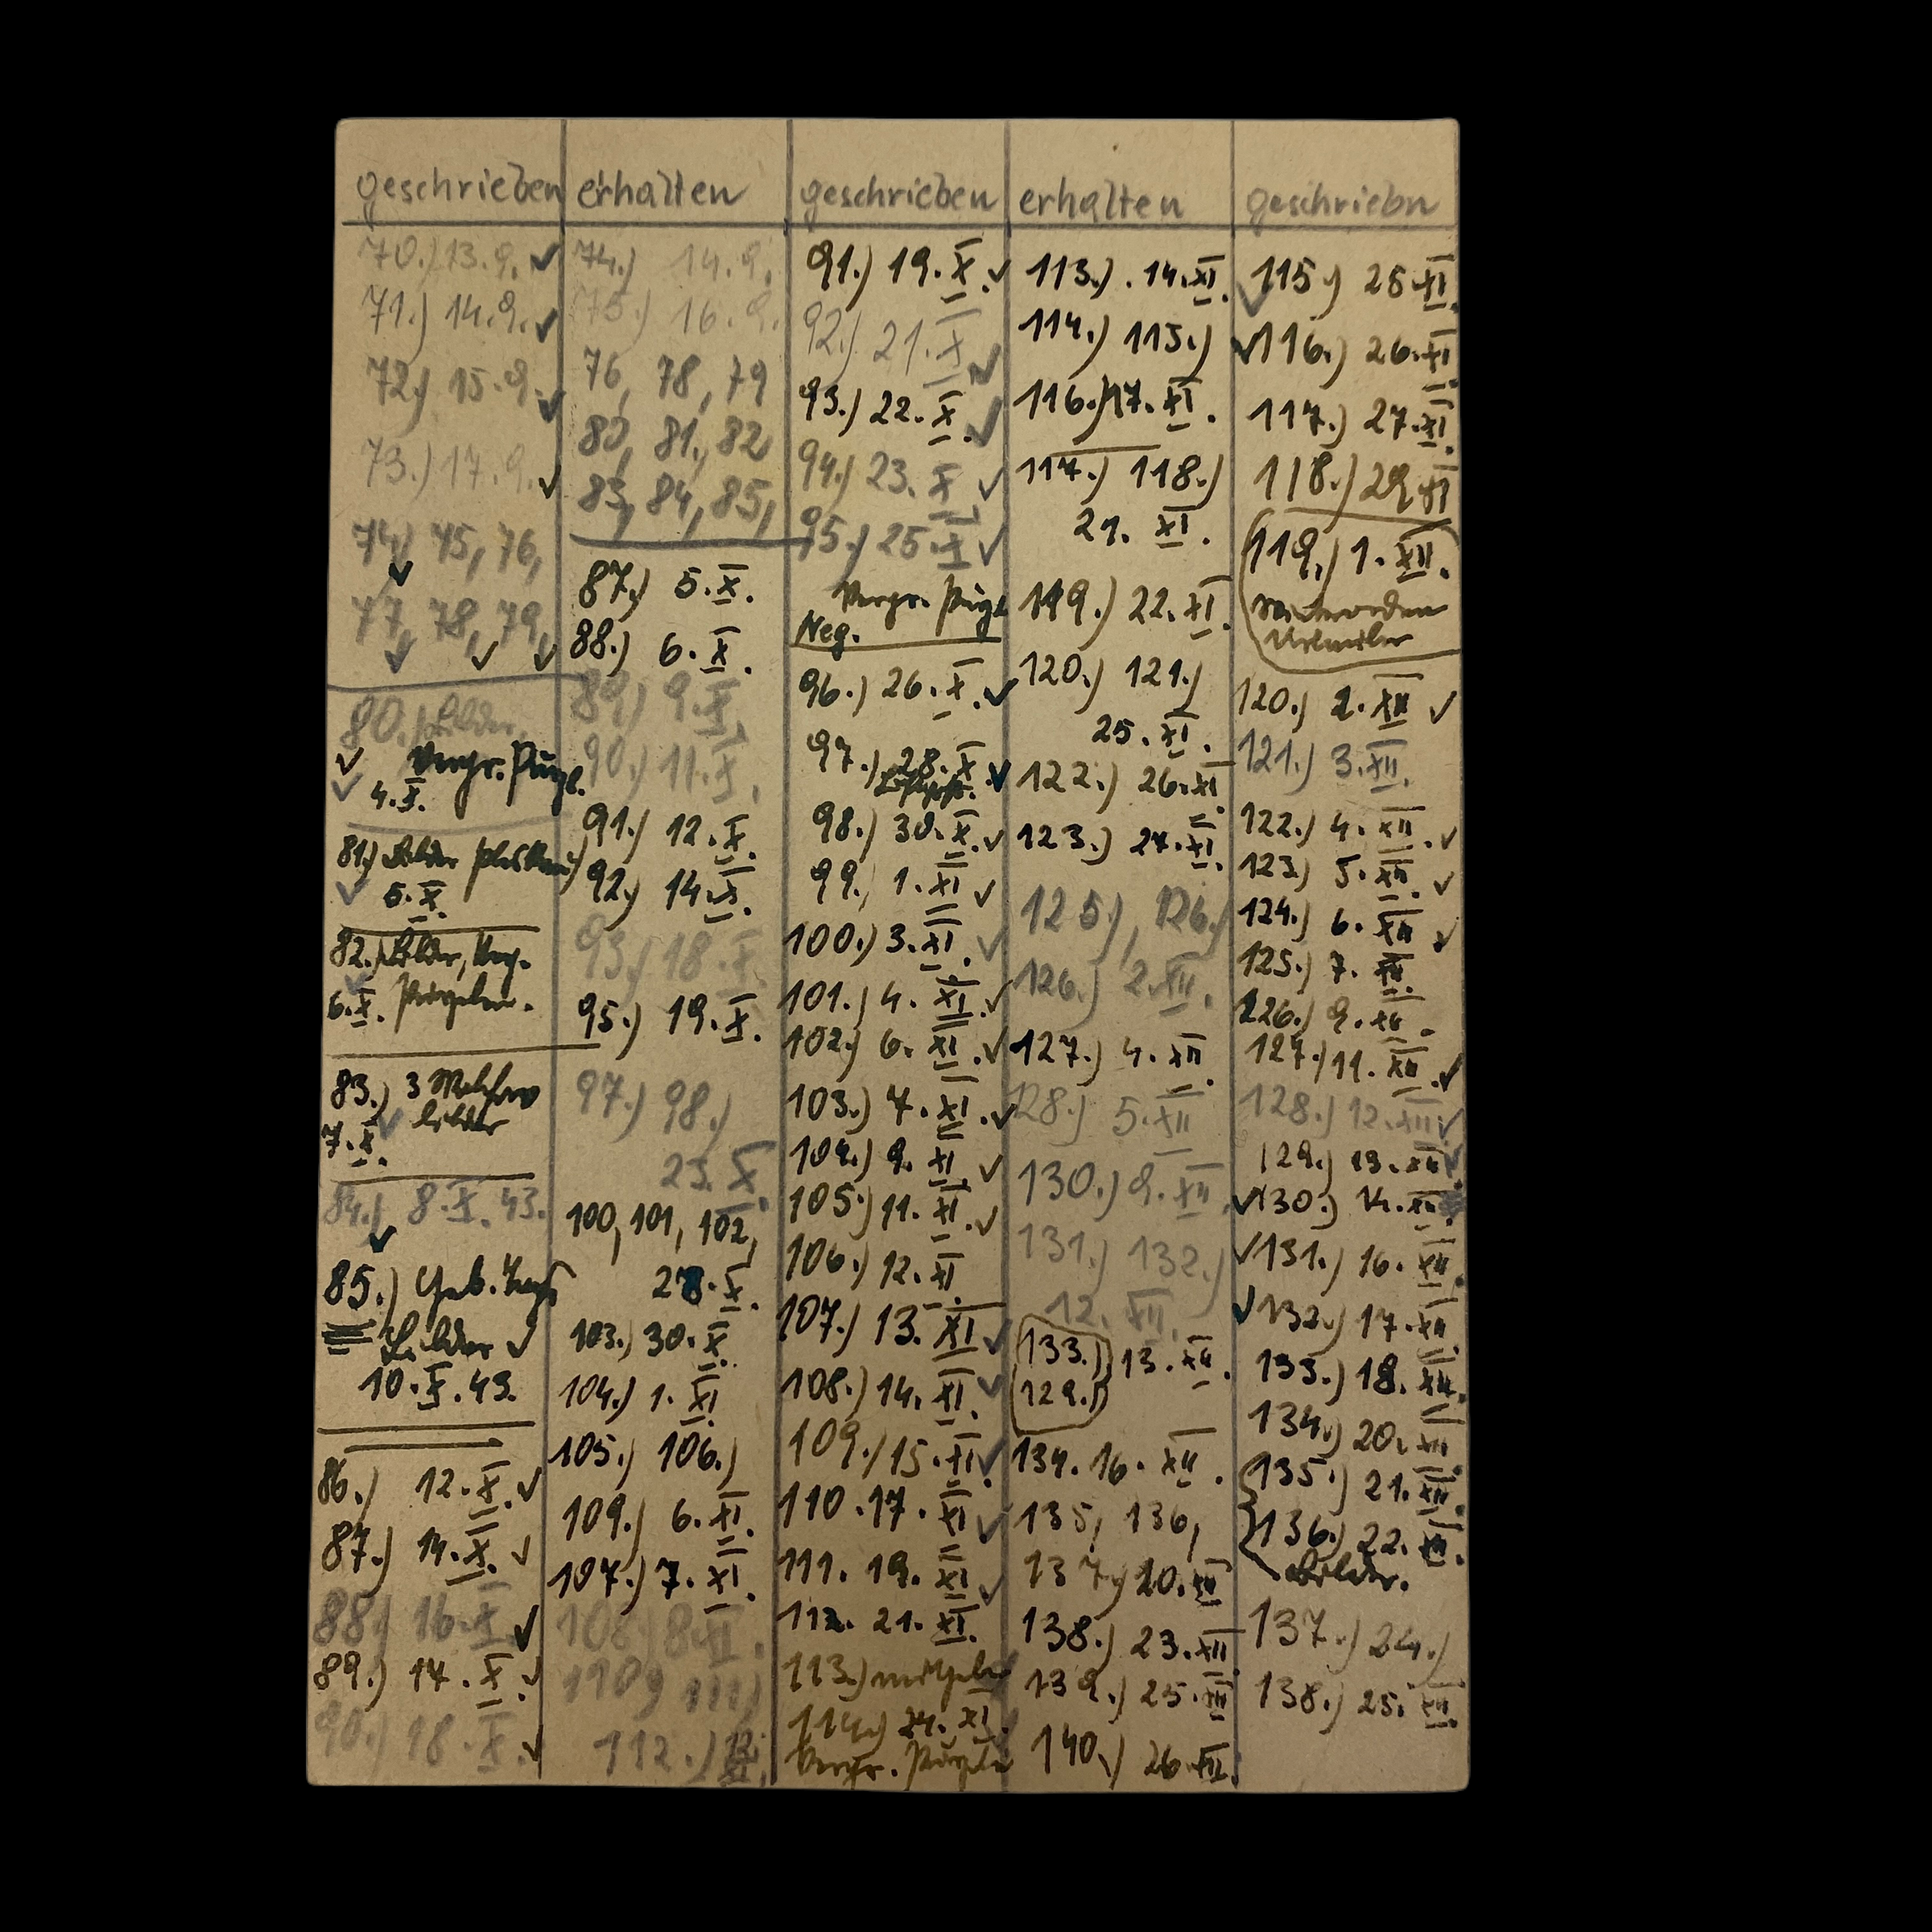 geschrieben
70.) 13.9. ✓
71.) 14.9. ✓
72.) 15.9. ✓
73.) 17.9. ✓
74, 75, 76,
✓
77, 78, 79,
✓ ✓ ✓
80.) Bilder,
✓ Vergr.
✓ 4.X.
81.) Bilder
✓ 5.X.
82.) Bilder, Neg.
6.X.
83.) 3
bilder
7.X.
84.) 8.X.43.
✓
85.) Geb.
Bilder ✓
10.X.43.
86.) 12.X. ✓
87.) 14.X. ✓
88.) 16.X. ✓
89.) 17.X. ✓
90.) 18.X. ✓
erhalten
74.) 14.9.
75.) 16.9.
76, 78, 79
80, 81, 82
83, 84, 85,
87.) 5.X.
88.) 6.X.
89.) 9.X.
90.) 11.X.
91.) 12.X.
92.) 14.X.
93.) 18.X.
95.) 19.X.
97.) 98.)
23.X.
100, 101, 102,
28.X.
103.) 30.X.
104.) 1.XI.
105.) 106.)
109.) 6.XI.
107.) 7.XI.
108.) 8.XI.
110.) 111.)
112.) 12.XI.
geschrieben
91.) 19.X. ✓
92.) 21.X ✓
93.) 22.X. ✓
94.) 23.X ✓
95.) 25.X ✓
Vergr.
Neg.
96.) 26.X. ✓
97.) 28.X. ✓
98.) 30.X. ✓
99.) 1.XI ✓
100.) 3.XI. ✓
101.) 4.XI. ✓
102.) 6.XI. ✓
103.) 7.XI. ✓
104.) 9.XI ✓
105.) 11.XI. ✓
106.) 12.XI.
107.) 13.XI ✓
108.) 14.XI. ✓
109.) 15.XI. ✓
110. 17.XI ✓
111. 19.XI ✓
112. 21.XI.
113.)
114.) 24.XI.
Vergr.
erhalten
113.) 14.XI.
114.) 115.)
116.) 17.XI.
117.) 118.)
21.XI.
119.) 22.XI.
120.) 121.)
25.XI.
122.) 26.XI.
123.) 27.XI.
125.), 126.)
126.) 2.XII.
127.) 4.XII.
128.) 5.XII
130.) 9.XII.
131.) 132.)
12.XII.
133.) 13.XII.
129.)
134. 16.XII.
135, 136,
137.) 20.XII
138.) 23.XII.
139.) 25.XII
140.) 26.XII.
geschriebn
✓ 115.) 25.XI.
✓ 116.) 26.XI.
117.) 27.XI.
118.) 29.XI
119.) 1.XII.
120.) 2.XII ✓
121.) 3.XII.
122.) 4.XII. ✓
123.) 5.XII. ✓
124.) 6.XII ✓
125.) 7.XII.
126.) 9.XII.
127.) 11.XII. ✓
128.) 12.XII ✓
129.) 13.XII ✓
✓ 130.) 14.XII
✓ 131.) 16.XII.
✓ 132.) 17.XII.
133.) 18.XII.
134.) 20.XII.
135.) 21.XII.
136.) 22.XII.
Bilder.
137.) 24.)
138.) 25.XII.